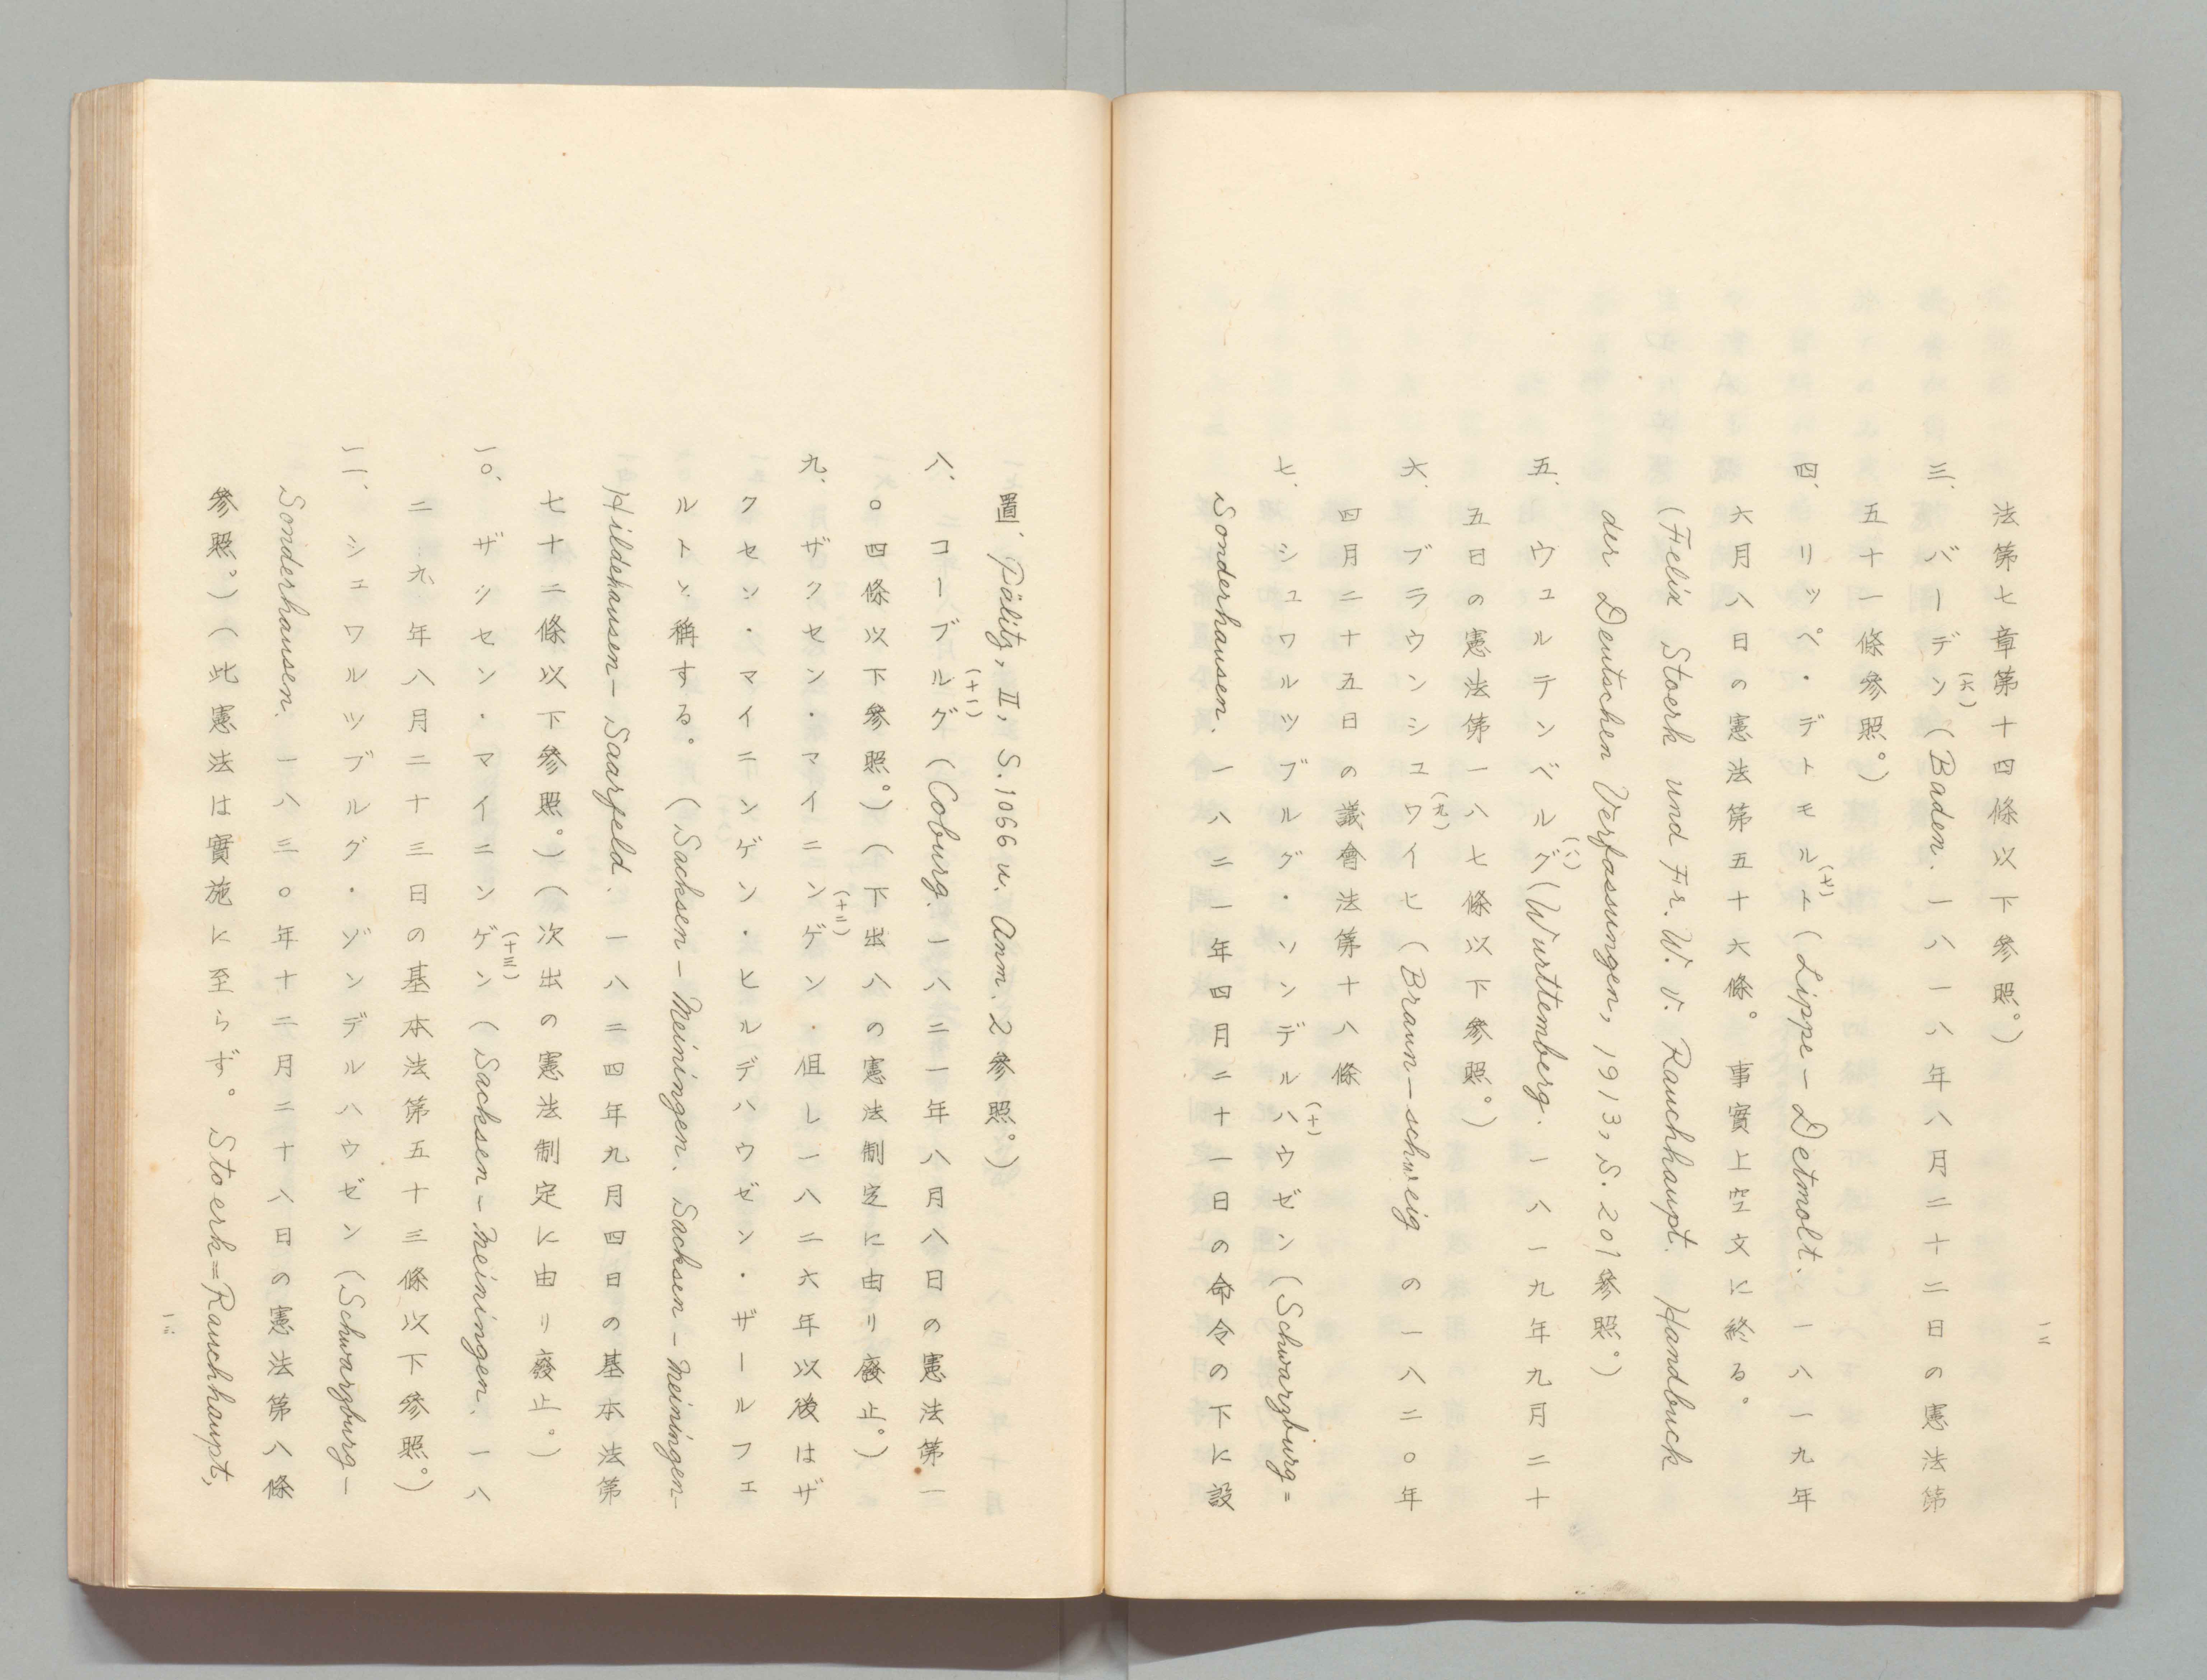 一二
法第七章第十四條以下參照。)
三、バーデン(六)(Baden. 一八一八年八月二十二日の憲法第
五十一條參照。)
四、リッペ・デトモルト(七)(Lippe-Detmolt. 一八一九年
六月八日の憲法第五十六條。事實上空文に終る。
(Felix Stoerk und Fr. W. v. Rauchhaupt. Handbuch
der Deutschen Verfassungen, 1913, S. 201參照。)
五、ウュルテンベルグ(八)(Wurttemberg. 一八一九年九月二十
五日の憲法第一八七條以下參照。)
六、ブラウンシュワイヒ(九)(Braun-schweig の一八二〇年
四月二十五日の議會法第十八條
七、シュワルツブルグ・ソンデルハウゼン(十)(Schwarzburg=
Sonderhausen. 一八二一年四月二十一日の命令の下に設
置、Pölitz, II, S.1066 u. Anm. 2參照。)
八、コーブルグ(十一)(Coburg. 一八二一年八月八日の憲法第一
〇四條以下參照。)(下出八の憲法制定に由り廢止。)
九、ザクセン・マイニンゲン(十二)・但し一八二六年以後はザ
クセン・マイニンゲン・ヒルデハウゼン・ザールフェ
ルトと稱する。(Sachsen-Meiningen. Sachsen-Meiningen-
Hildehausen-Saarfeld. 一八二四年九月四日の基本法第
七十二條以下參照。)(次出の憲法制定に由り廢止。)
一〇、ザクセン・マイニンゲン(十三)(Sachsen-Meiningen. 一八
二九年八月二十三日の基本法第五十三條以下參照。)
一一、シュワルツブルグ・ゾンデルハウゼン(Schwarzburg-
Sonderhausen. 一八三〇年十二月二十八日の憲法第八條
參照。)(此憲法は實施に至らず。Stoerk=Rauchhaupt,